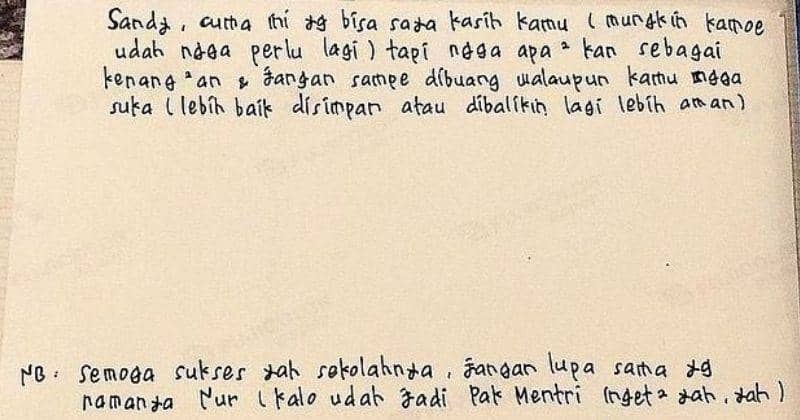 Sandy, cuma ini yg bisa saya kasih kamu (mungkin kamoe
udah ngga perlu lagi) tapi ngga apa² kan sebagai
kenang²an & jangan sampe dibuang walaupun kamu ngga
suka (lebih baik disimpan atau dibalikin lagi lebih aman)
NB: semoga sukses yah sekolahnya, jangan lupa sama yg
namanya Nur (kalo udah jadi Pak Mentri inget² yah, yah)